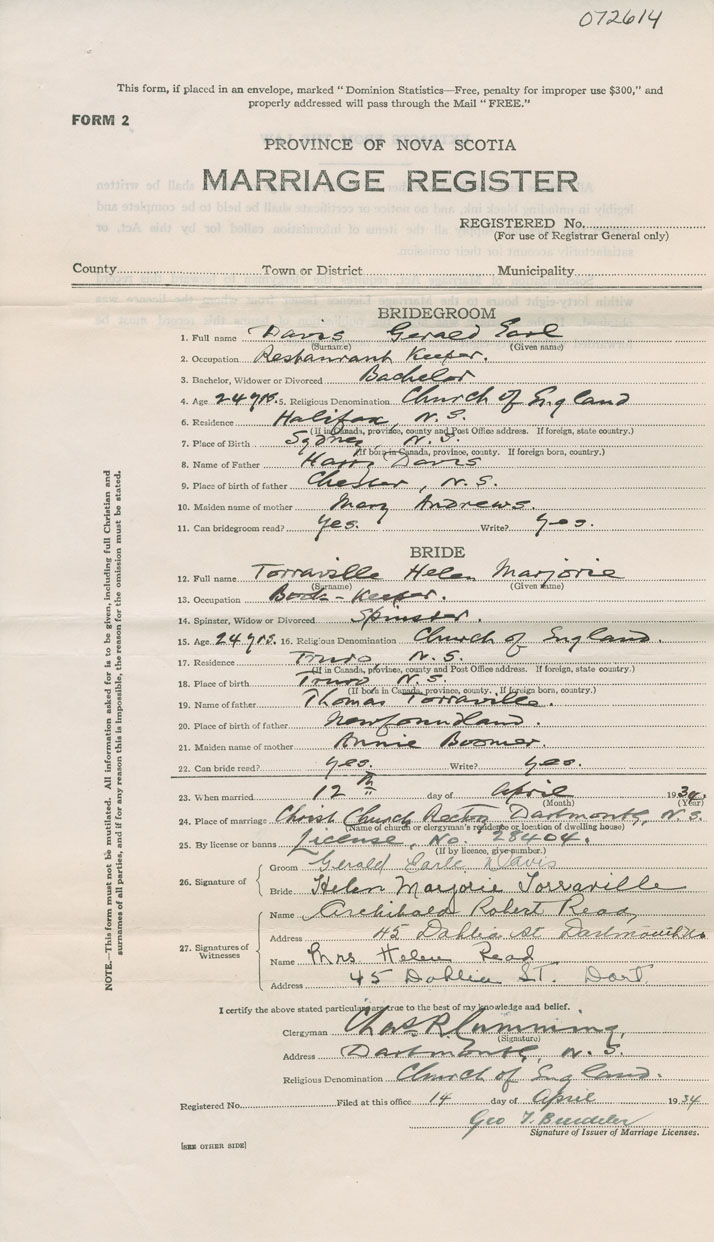 072614
This form, if placed in an envelope, marked "Dominion Statistics—Free, penalty for improper use $300," and
properly addressed will pass through the Mail "FREE."
FORM 2
PROVINCE OF NOVA SCOTIA
MARRIAGE REGISTER
REGISTERED No.
(For use of Registrar General only)
County Town or District Municipality
BRIDEGROOM
1. Full name Davis Gerald Earl
(Surname) (Given name)
2. Occupation Restaurant Keeper.
3. Bachelor, Widower or Divorced Bachelor
4. Age 24 yrs. 5. Religious Denomination Church of England
6. Residence Halifax, N.S.
(If in Canada, province, county and Post Office address. If foreign, state country.)
7. Place of Birth Sydney, N.S.
(If born in Canada, province, county. If foreign born, country.)
8. Name of Father Harry Davis
9. Place of birth of father Chester, N.S.
10. Maiden name of mother Mary Andrews.
11. Can bridegroom read? Yes. Write? Yes.
BRIDE
12. Full name Torraville Helen Marjorie
(Surname) (Given name)
13. Occupation Book-Keeper.
14. Spinster, Widow or Divorced Spinster.
15. Age 24 yrs. 16. Religious Denomination Church of England.
17. Residence Truro N.S.
(If in Canada, province, county and Post Office address. If foreign, state country.)
18. Place of birth Truro N.S.
(If born in Canada, province, county. If foreign born, country.)
19. Name of father Thomas Torraville.
20. Place of birth of father Newfoundland.
21. Maiden name of mother Annie Boomer.
22. Can bride read? Yes. Write? Yes.
23. When married 12th day of April 1934.
(Month) (Year)
24. Place of marriage Christ Church Rectory Dartmouth, N.S.
(Name of church or clergyman's residence or location of dwelling house)
25. By license or banns License, No. 28404.
(If by licence, give number.)
26. Signature of
Groom Gerald Earle Davis
Bride Helen Marjorie Torraville
27. Signatures of Witnesses
Name Archibald Robert Read,
Address 45 Dahlia St Dartmouth NS
Name Mrs Helen Read
Address 45 Dahlia ST. Dart.
I certify the above stated particulars are true to the best of my knowledge and belief.
Clergyman Chas R Cumming,
(Signature)
Address Dartmouth, N.S.
Religious Denomination Church of England.
Registered No. Filed at this office 14 day of April 1934
Geo
Signature of Issuer of Marriage Licenses.
[SEE OTHER SIDE]
NOTE.—This form must not be mutilated. All information asked for is to be given, including full Christian and
surnames of all parties, and if for any reason this is impossible, the reason for the omission must be stated.